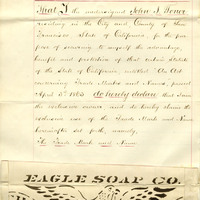 That I the undersigned John A. Bauer
residing in the City and County of San
Francisco State of California, for the pur
pose of securing to myself the advantage,
benefit and protection of that certain Statute
of the State of California, entitled "An Act
concerning Trade Marks and Names", passed
April 3d 1863 do hereby declare that I am
the exclusive owner, and do hereby claim the
exclusive use of the Trade Mark and Name
hereinafter set forth, namely,
The Trade Mark and Name
EAGLE SOAP CO.